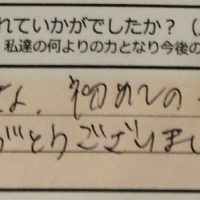 れていかがでしたか？（
私達の何よりの力となり今後の
よ、初めての
がとうございまし